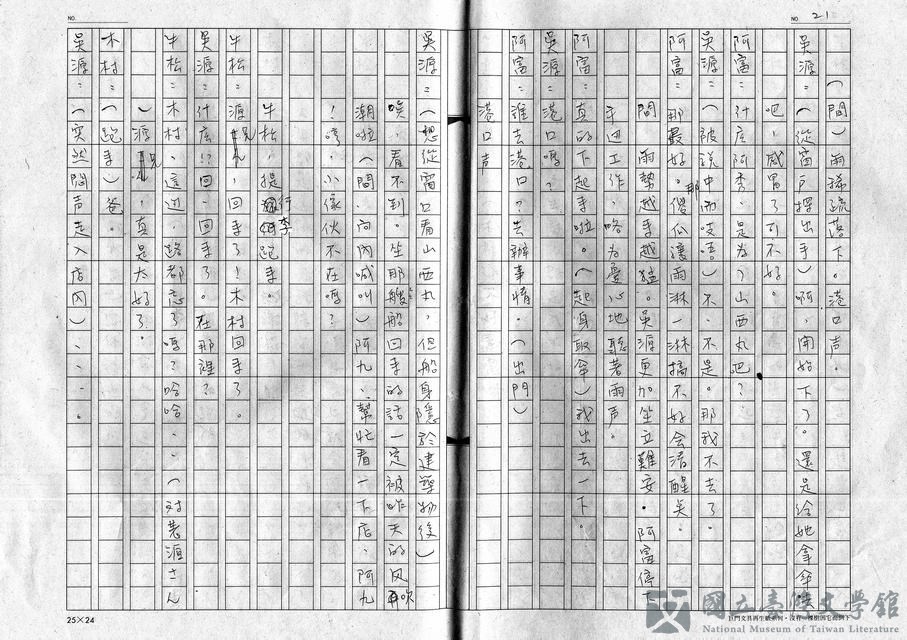 NO. 21
(間)雨稀疏落下。港口声。
吳源:(從窗戶探出手)啊,開始下了。還是给她拿傘去
吧,感冒了可不好。
阿富:什麼阿秀,是為了山西丸吧?
吳源:(被說中而吱唔)不、不是。那我不去了。
阿富:那最好。那傻瓜讓雨淋一淋搞不好会清醒矣。
問 雨勢越来越猛。吳源更加坐立難安。阿富停下
手边工作,略為憂心地聽著雨声。
阿富:真的下起来啦。(起身取傘)我出去一下。
吳源:港口嗎?
阿富:誰去港口?去辦事情。(出門)
港口声
NO.
吳源:(想從窗口看山西丸,但船身隱於建築物後)
唉,看不到。坐那艘船回来的話一定被昨天的风再吹
潮啦(間。向內喊叫)阿九、幫忙看一下店、阿九
!嘖,小傢伙不在嗎?
牛松,提行李跑来。
牛松:源兄,回来了!木村回来了。
吳源:什麼!?回、回来了。在那裡?
牛松:木村、這边,路都忘了嗎?哈哈、、(对着源さん
)源兄,真是太好了。
木村:(跑来)爸。
吳源:(突然悶声走入店內)、、、、。
25×24
巨門文具再生紙系列,沒有一棵樹因它而倒下
國立臺灣文學館
National Museum of Taiwan Literature